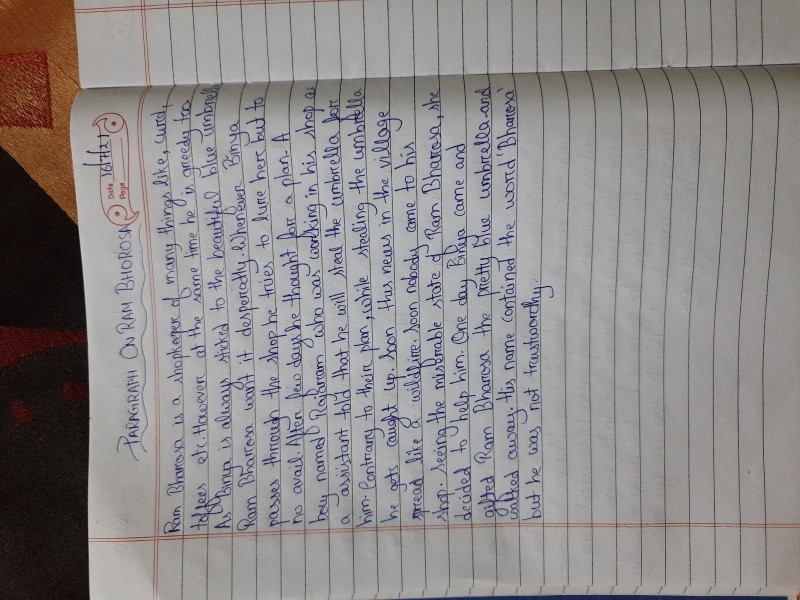 Date 16/7/21
Page
PARAGRAPH ON RAM BHOROSA
Ram Bharosa is a shopkeeper of many things like, curd,
toffees etc. However at the same time he is greedy too.
As Binya is always sticked to the beautiful blue umbrella
Ram Bharosa want it desperatly. Whenever Binya
passes through the shop he tries to lure her but to
no avail. After few days he thought for a plan. A
boy named Rajaram who was working in his shop as
a assistant told that he will steal the umbrella for
him. Contrary to their plan, while stealing the umbrella
he gets caught up. Soon this news in the village
spread like a wildfire. Soon nobody come to his
shop. Seeing the miserable state of Ram Bharosa, she
decided to help him. One day Binya came and
gifted Ram Bharosa the pretty blue umbrella and
walked away. His name contained the word 'Bharosa'
but he was not trustworthy.